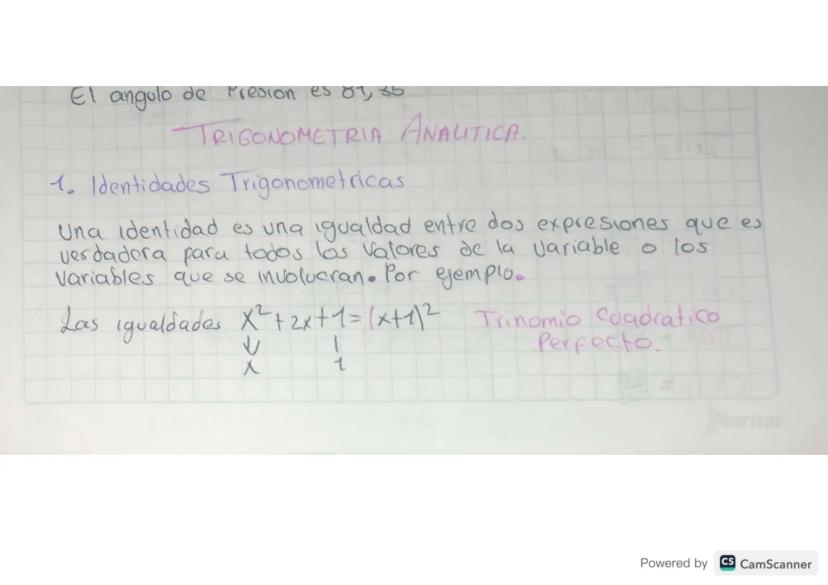 El angulo de Presion es 81,36
TRIGONOMETRIA ANALITICA.
1. Identidades Trigonometricas
Una identidad es una igualdad entre dos expresiones que es
verdadera para todos los valores de la variable o los
variables que se involucran. Por ejemplo.
Las igualdades x²+2x+1=(x+1)² Trinomio Cuadratico
Perfecto.
↓ |
x 1
norma
Powered by CS CamScanner